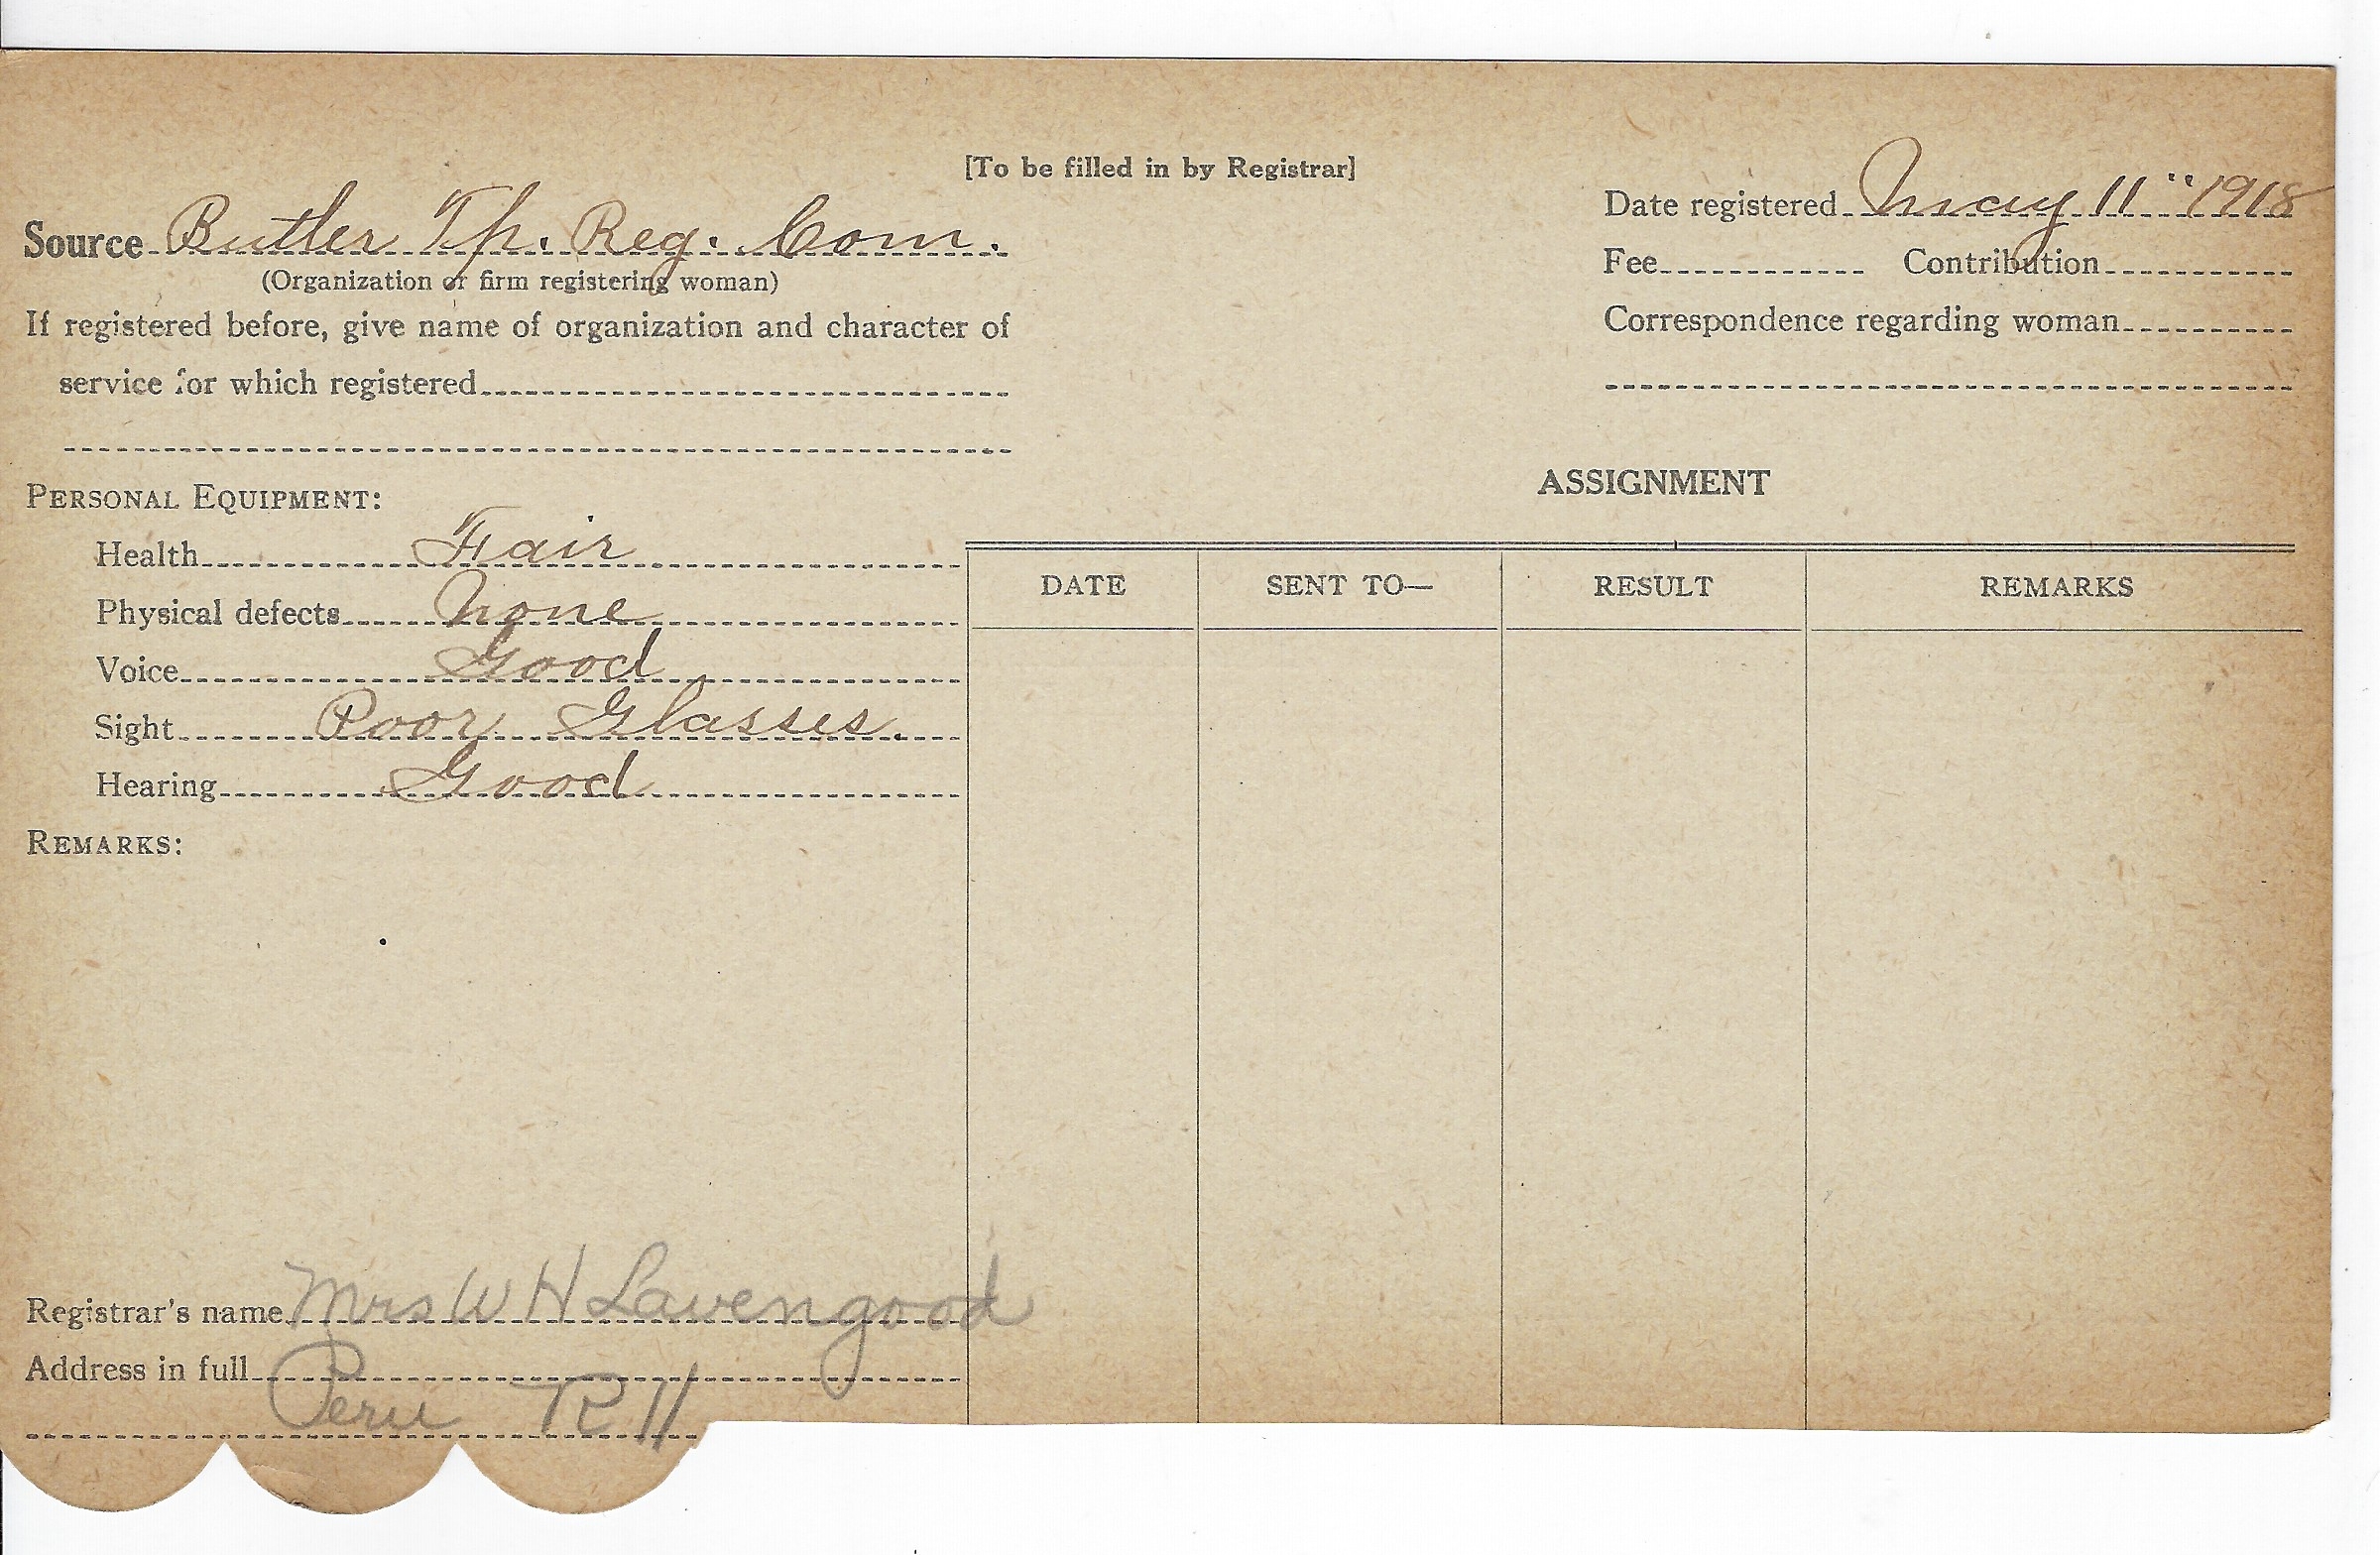 [To be filled in by Registrar]
Source Butler Tp. Reg. Com.
(Organization or firm registering woman)
If registered before, give name of organization and character of
service for which registered
Date registered May 11" 1918
Fee Contribution
Correspondence regarding woman
PERSONAL EQUIPMENT:
Health Fair
Physical defects None
Voice Good
Sight Poor Glasses.
Hearing Good
REMARKS:
ASSIGNMENT
DATE SENT TO— RESULT REMARKS
Registrar's name Mrs W H Lavengood
Address in full
Peru R 11